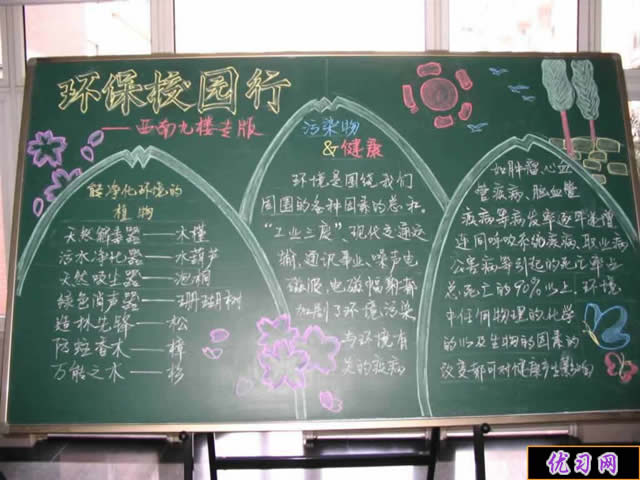 环保校园行
——西南九楼专版
能净化环境的
植物
天然解毒器——木槿
污水净化器——水葫芦
天然吸尘器——泡桐
绿色消声器——珊瑚树
造林先锋——松
防蛀香木——樟
万能之木——杉
污染物
&健康
环境是围绕我们
周围的各种因素的总和。
"工业三废"、现代交通运
输、通讯事业、噪声电
磁波、电磁辐射都
加剧了环境污染
与环境有
关的疾病
如肿瘤、心血
管疾病、脑血管
疾病等病发率逐年递增
连同呼吸系统疾病、职业病
公害病等引起的死亡率占
总死亡的90%以上，环境
中任何物理的化学
的以及生物的因素的
改变都可对健康产生影响
优习网